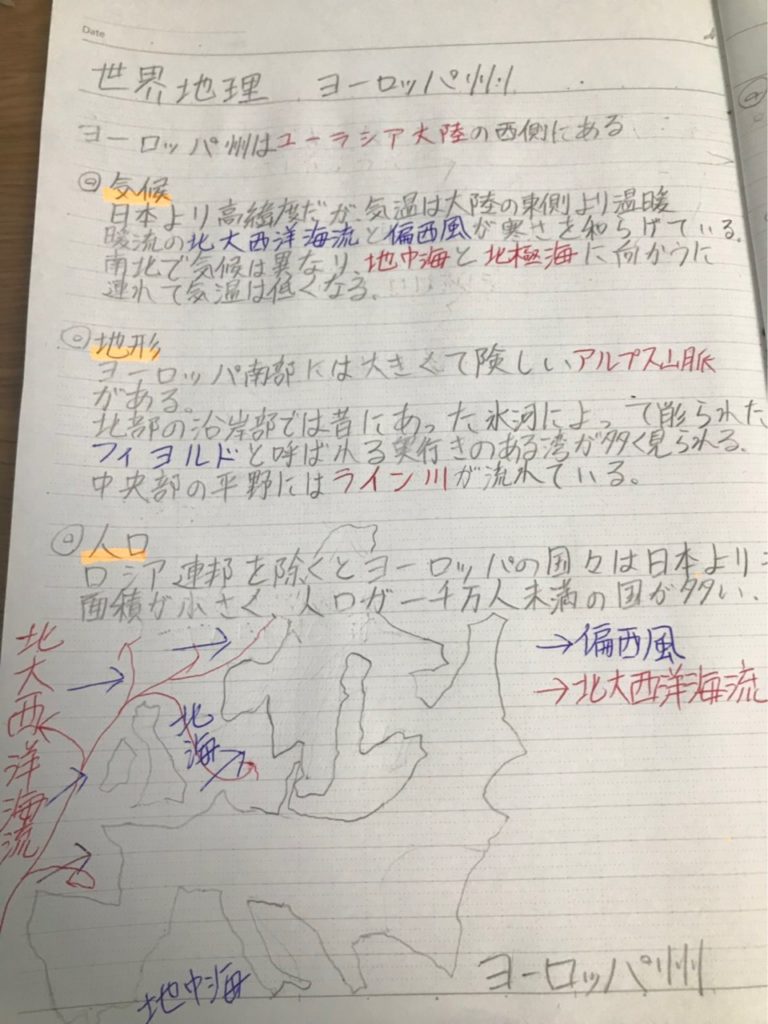 Date
世界地理 ヨーロッパ州
ヨーロッパ州はユーラシア大陸の西側にある
気候
日本より高緯度だが、気温は大陸の東側より温暖
暖流の北大西洋海流と偏西風が寒さを和らげている。
南北で気候は異なり、地中海と北極海に向かうに
連れて気温は低くなる。
地形
ヨーロッパ南部には大きくて険しいアルプス山脈
がある。
北部の沿岸部では昔にあった氷河によって削られた
フィヨルドと呼ばれる奥行きのある湾が多く見られる。
中央部の平野にはライン川が流れている。
人口
ロシア連邦を除くとヨーロッパの国々は日本より
面積が小さく、人口が一千万人未満の国が多い。
→偏西風
→北大西洋海流
北大西洋海流
北海
地中海
ヨーロッパ州